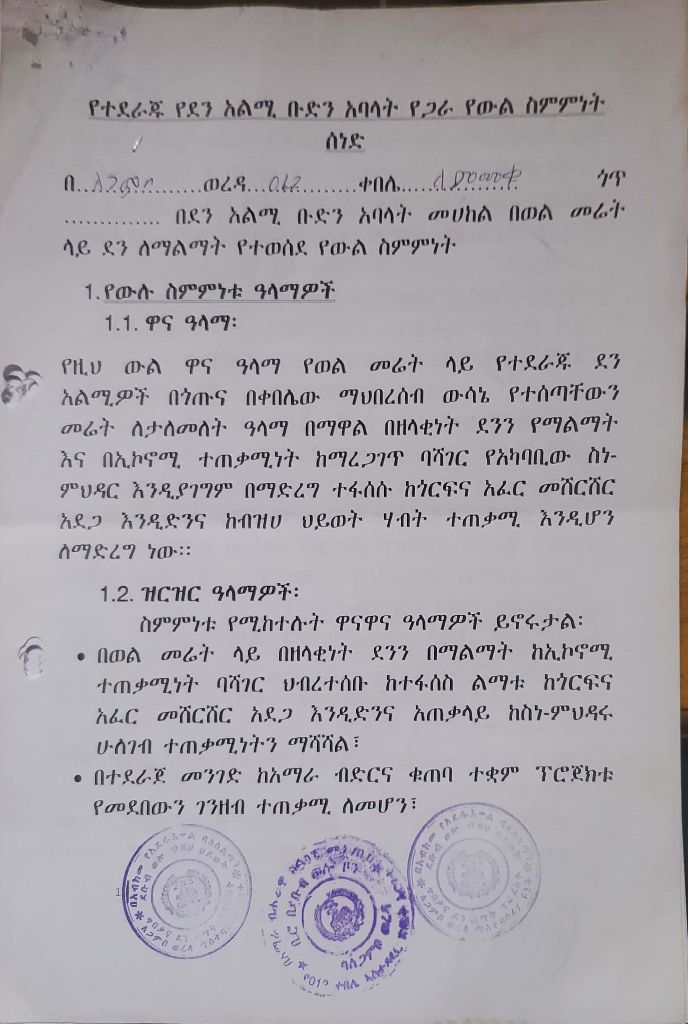 የተደራጁ የደን አልሚ ቡድን አባላት የጋራ የውል ስምምነት
ሰነድ
በ...ለጋምቦ........ወረዳ...012..........ቀበሌ............ ጎጥ
............... በደን አልሚ ቡድን አባላት መሀከል በወል መሬት
ላይ ደን ለማልማት የተወሰደ የውል ስምምነት
1. የውሉ ስምምነቱ ዓላማዎች
1.1. ዋና ዓላማ፡
የዚህ ውል ዋና ዓላማ የወል መሬት ላይ የተደራጁ ደን
አልሚዎች በጎጡና በቀበሌው ማህበረሰብ ውሳኔ የተሰጣቸውን
መሬት ለታለመለት ዓላማ በማዋል በዘላቂነት ደንን የማልማት
እና በኢኮኖሚ ተጠቃሚነት ከማረጋገጥ ባሻገር የአካባቢው ስነ-
ምህዳር እንዲያገግም በማድረግ ተፋሰሱ ከጎርፍና አፈር መሸርሸር
አደጋ እንዲድንና ከብዝሀ ህይወት ሃብት ተጠቃሚ እንዲሆን
ለማድረግ ነው።
1.2. ዝርዝር ዓላማዎች፡
ስምምነቱ የሚከተሉት ዋናዋና ዓላማዎች ይኖሩታል፡
• በወል መሬት ላይ በዘላቂነት ደንን በማልማት ከኢኮኖሚ
ተጠቃሚነት ባሻገር ህብረተሰቡ ከተፋሰስ ልማቱ ከጎርፍና
አፈር መሸርሸር አደጋ እንዲድንና አጠቃላይ ከስነ-ምህዳሩ
ሁለገብ ተጠቃሚነትን ማሻሻል፣
• በተደራጀ መንገድ ከአማራ ብድርና ቁጠባ ተቋም ፕሮጀክቱ
የመደበውን ገንዘብ ተጠቃሚ ለመሆን፣
1